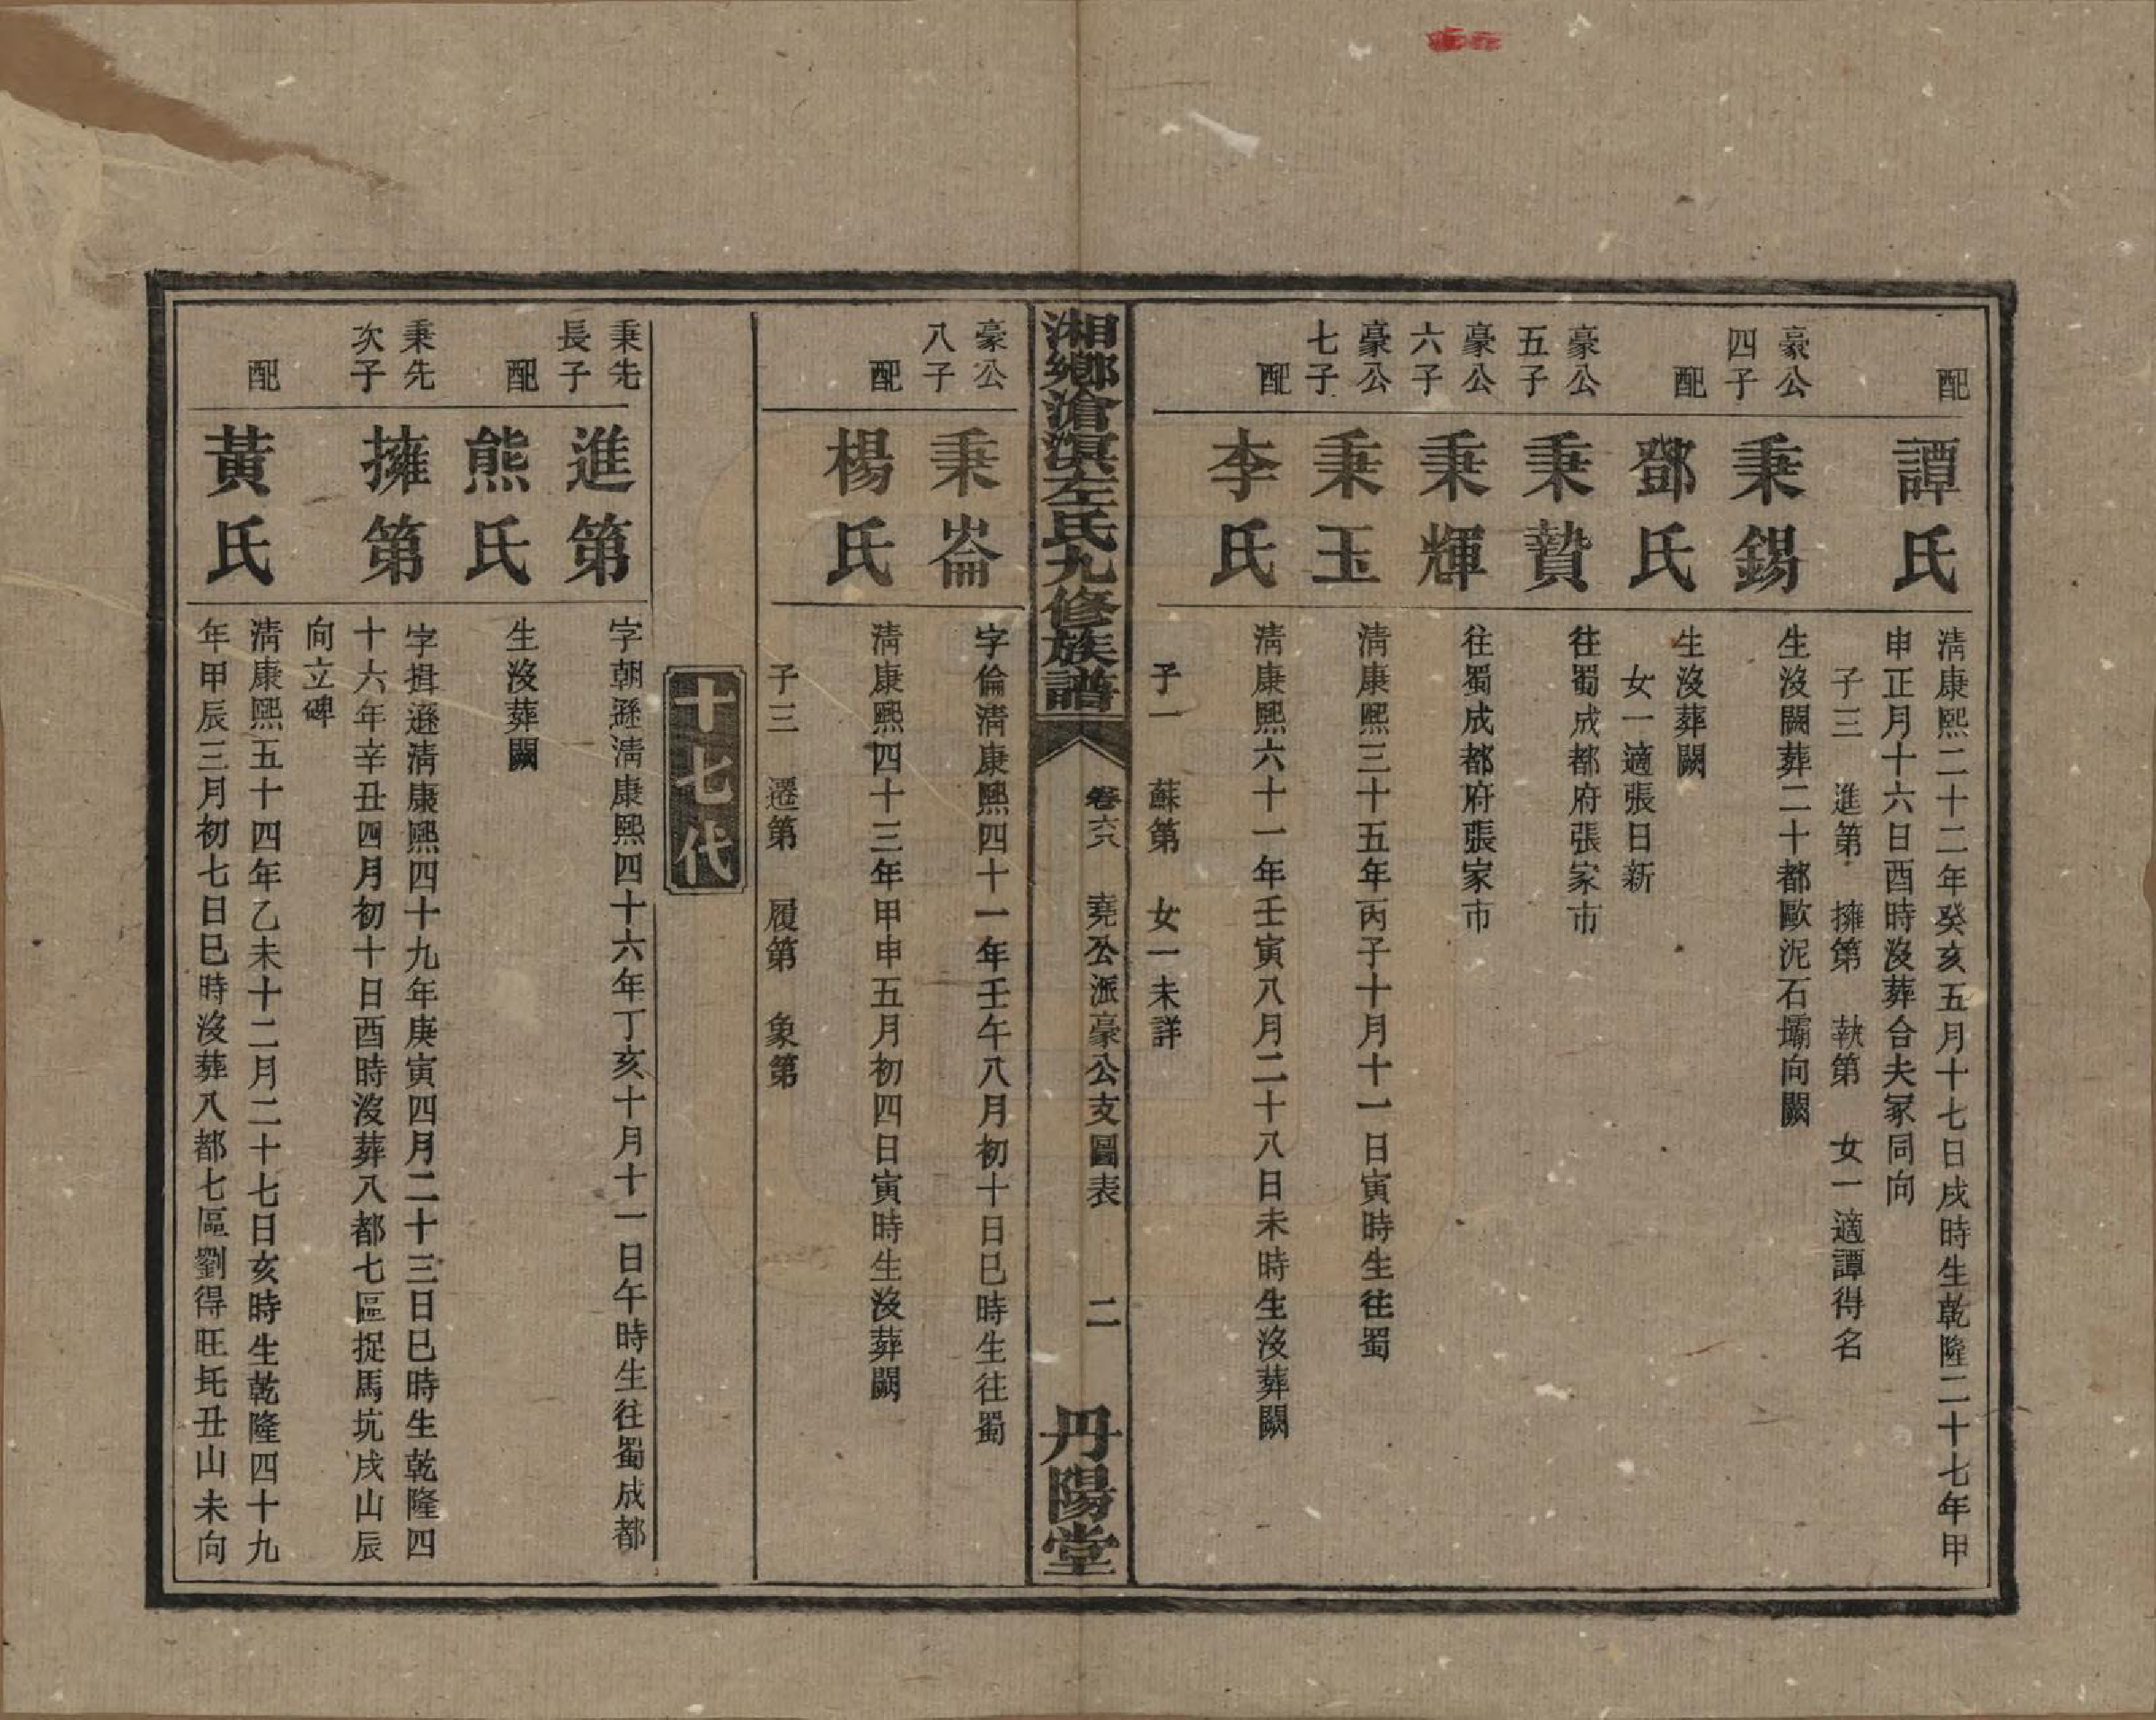 配
譚氏
淸康熙二十二年癸亥五月十七日戌時生乾隆二十七年甲
申正月十六日酉時沒葬合夫冢同向
子三　進第　擁第　執第　女一適譚得名
豪公
四子
秉錫
生沒闕葬二十都歐泥石壩向闕
配
鄧氏
生沒葬闕
女一適張日新
豪公
五子
秉贄
往蜀成都府張家市
豪公
六子
秉輝
往蜀成都府張家市
豪公
七子
秉玉
淸康熙三十五年丙子十月十一日寅時生往蜀
配
李氏
淸康熙六十一年壬寅八月二十八日未時生沒葬闕
子一　蘇第　女一未詳
湘鄉滄溟左氏九修族譜
卷六八　堯公派豪公支圖表　二
丹陽堂
豪公
八子
秉崙
字倫淸康熙四十一年壬午八月初十日巳時生往蜀
配
楊氏
淸康熙四十三年甲申五月初四日寅時生沒葬闕
子三　遷第　履第　象第
十七代
秉先
長子
進第
字朝遜淸康熙四十六年丁亥十月十一日午時生往蜀成都
配
熊氏
生沒葬闕
秉先
次子
擁第
字揖遜淸康熙四十九年庚寅四月二十三日巳時生乾隆四
十六年辛丑四月初十日酉時沒葬八都七區捉馬坑戌山辰
向立碑
配
黃氏
淸康熙五十四年乙未十二月二十七日亥時生乾隆四十九
年甲辰三月初七日巳時沒葬八都七區劉得旺坉丑山未向